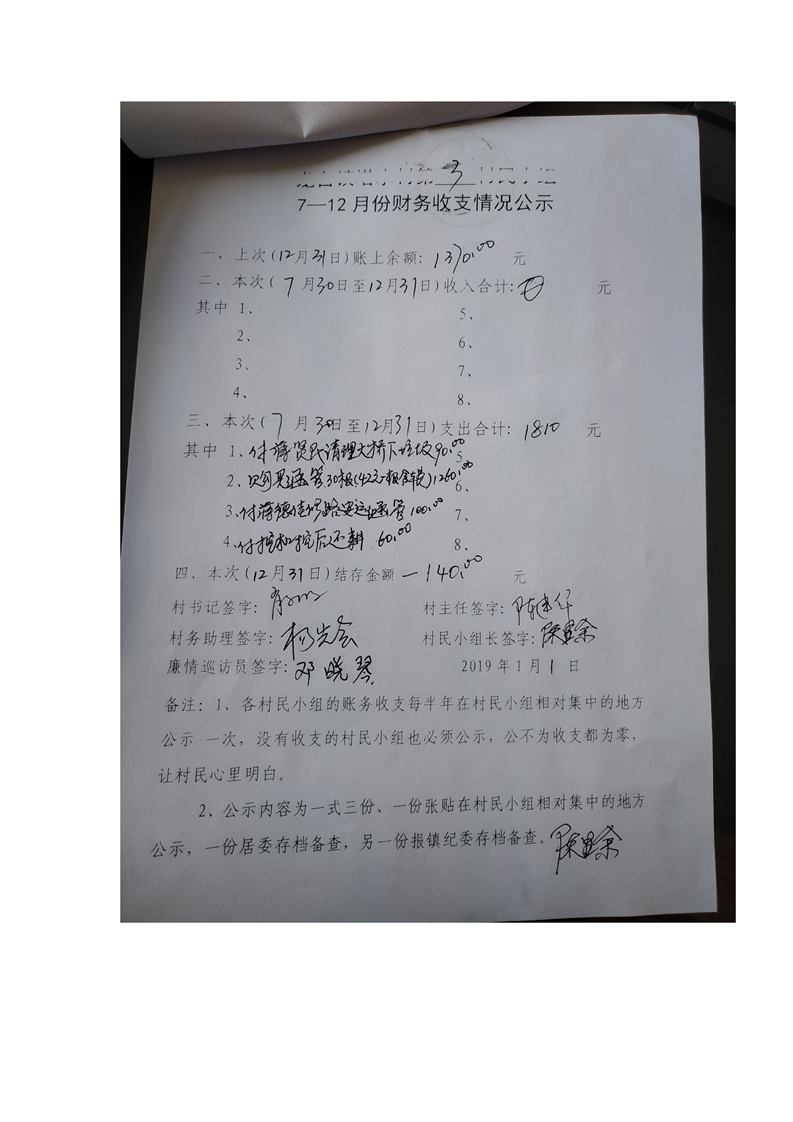 3
7—12月份财务收支情况公示
一、上次(12月31日)账上余额: 1370.00 元
二、本次( 7 月30日至12月31日)收入合计: 0 元
其中 1、 5、
2、 6、
3、 7、
4、 8、
三、本次( 7 月30日至12月31日)支出合计: 1810 元
其中 1、付蒋贤民清理大桥下垃圾90.00 5
2、涵管30根(42元1根含转)1260.00 6、
3、付蒋德修路运涵管100.00 7、
4、付挖机挖 60.00 8、
四、本次(12月31日)结存金额 -140.00 元
村书记签字: 村主任签字: 陈建华
村务助理签字: 杨先会 村民小组长签字:
廉情巡访员签字: 邓晓琴 2019年1月1日
备注: 1、各村民小组的账务收支每半年在村民小组相对集中的地方
公示 一次，没有收支的村民小组也必须公示，公不为收支都为零，
让村民心里明白。
2、公示内容为一式三份、一份张贴在村民小组相对集中的地方
公示，一份居委存档备查，另一份报镇纪委存档备查。